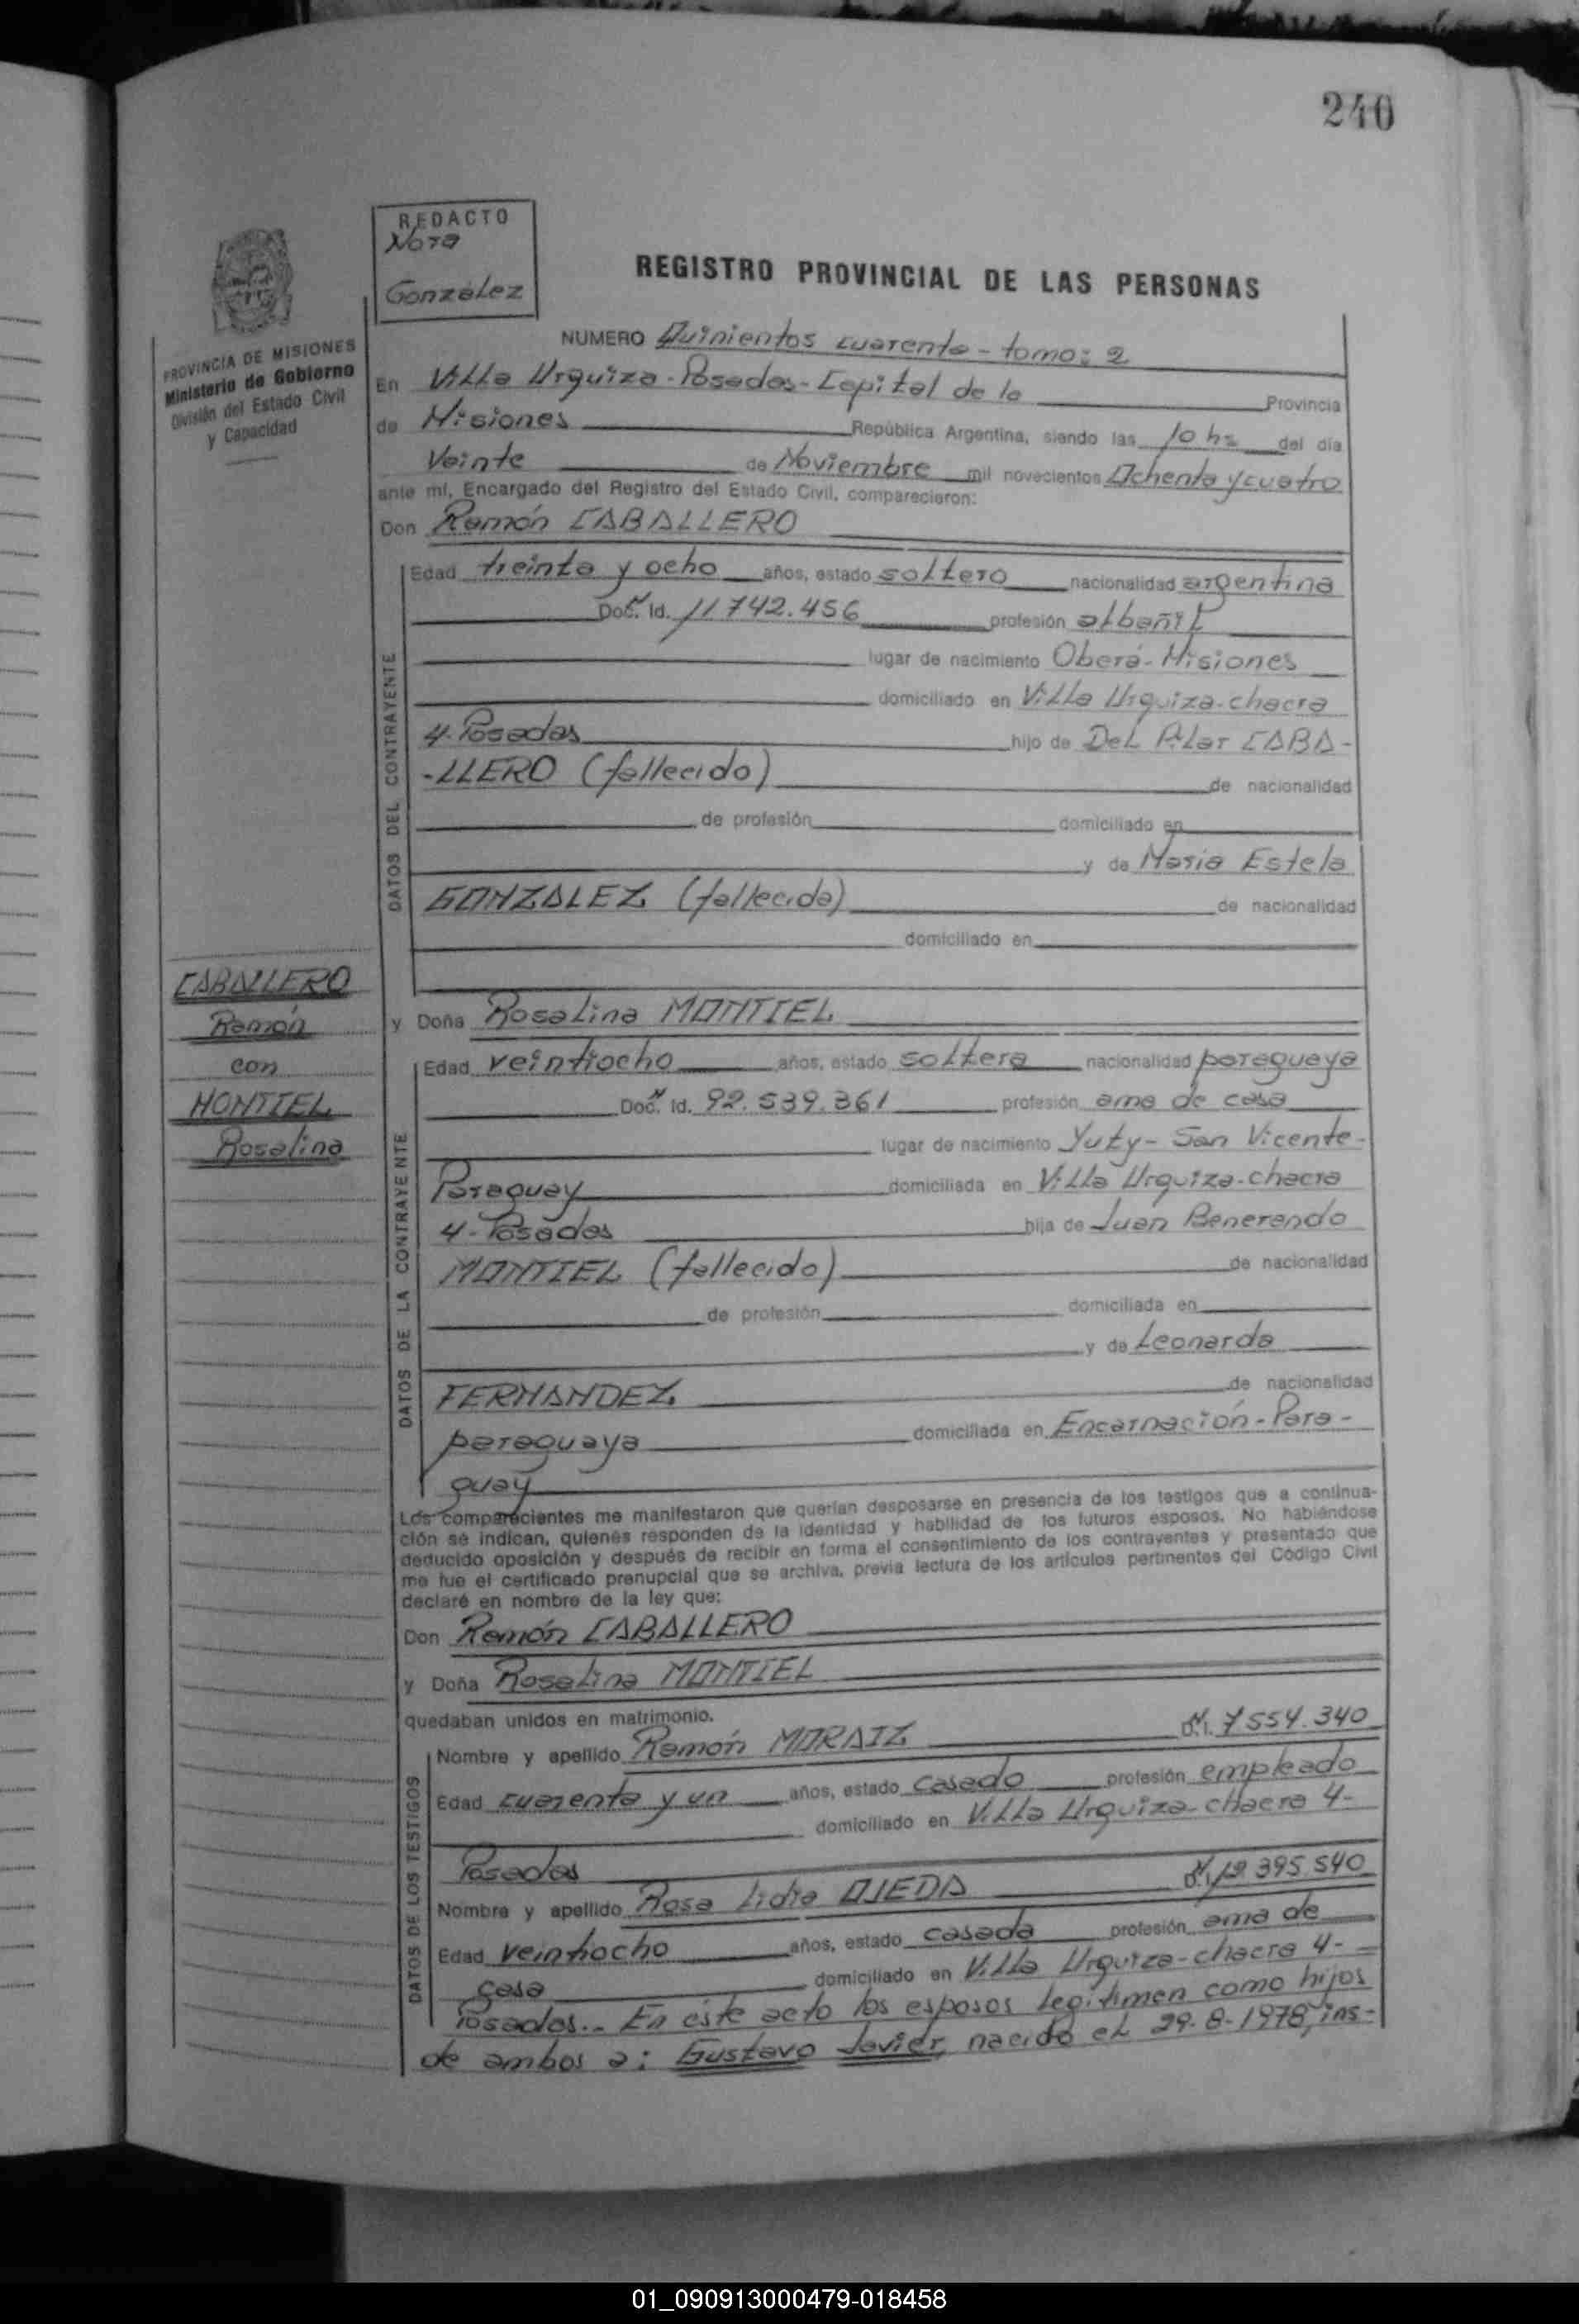 240
REDACTO
Nora
González
REGISTRO PROVINCIAL DE LAS PERSONAS
PROVINCIA DE MISIONES
Ministerio de Gobierno
División del Estado Civil
y Capacidad
NUMERO Quinientos cuarenta - tomo: 2
En Villa Urquiza - Posadas - Capital de la Provincia
de Misiones República Argentina, siendo las 10 hs del día
Veinte de Noviembre mil novecientos Ochenta y cuatro
ante mí, Encargado del Registro del Estado Civil, comparecieron:
Don Ramón CABALLERO
DATOS DEL CONTRAYENTE
Edad treinta y ocho años, estado soltero nacionalidad argentina
Doc. Id. 11742.456 profesión albañil
lugar de nacimiento Oberá - Misiones
domiciliado en Villa Urquiza - chacra
4 - Posadas hijo de Del Pilar CABA-
-LLERO (fallecido) de nacionalidad
de profesión domiciliado en
y de Maria Estela
GONZALEZ (fallecida) de nacionalidad
domiciliado en
CABALLERO
Ramón
con
MONTIEL
Rosalina
y Doña Rosalina MONTIEL
DATOS DE LA CONTRAYENTE
Edad veintiocho años, estado soltera nacionalidad paraguaya
Doc. Id. 92.539.361 profesión ama de casa
lugar de nacimiento Yuty - San Vicente -
Paraguay domiciliada en Villa Urquiza - chacra
4 - Posadas hija de Juan Benerando
MONTIEL (fallecido) de nacionalidad
de profesión domiciliada en
y de Leonarda
FERNANDEZ de nacionalidad
paraguaya domiciliada en Encarnación - Para-
guay
Los comparecientes me manifestaron que querían desposarse en presencia de los testigos que a continua-
ción se indican, quienes responden de la identidad y habilidad de los futuros esposos. No habiéndose
deducido oposición y después de recibir en forma el consentimiento de los contrayentes y presentado que
me fue el certificado prenupcial que se archiva, previa lectura de los artículos pertinentes del Código Civil
declaré en nombre de la ley que:
Don Ramón CABALLERO
y Doña Rosalina MONTIEL
quedaban unidos en matrimonio.
DATOS DE LOS TESTIGOS
Nombre y apellido Ramón MORAIZ 7554.340
Edad cuarenta y un años, estado casado profesión empleado
domiciliado en Villa Urquiza - chacra 4 -
Posadas
Nombre y apellido Rosa Lidia OJEDA 12395.540
Edad veintiocho años, estado casada profesión ama de
casa domiciliado en Villa Urquiza - chacra 4 -
Posadas.- En éste acto los esposos legitiman como hijos
de ambos a: Gustavo Javier, nacido el 29-8-1978, ins-
01_090913000479-018458